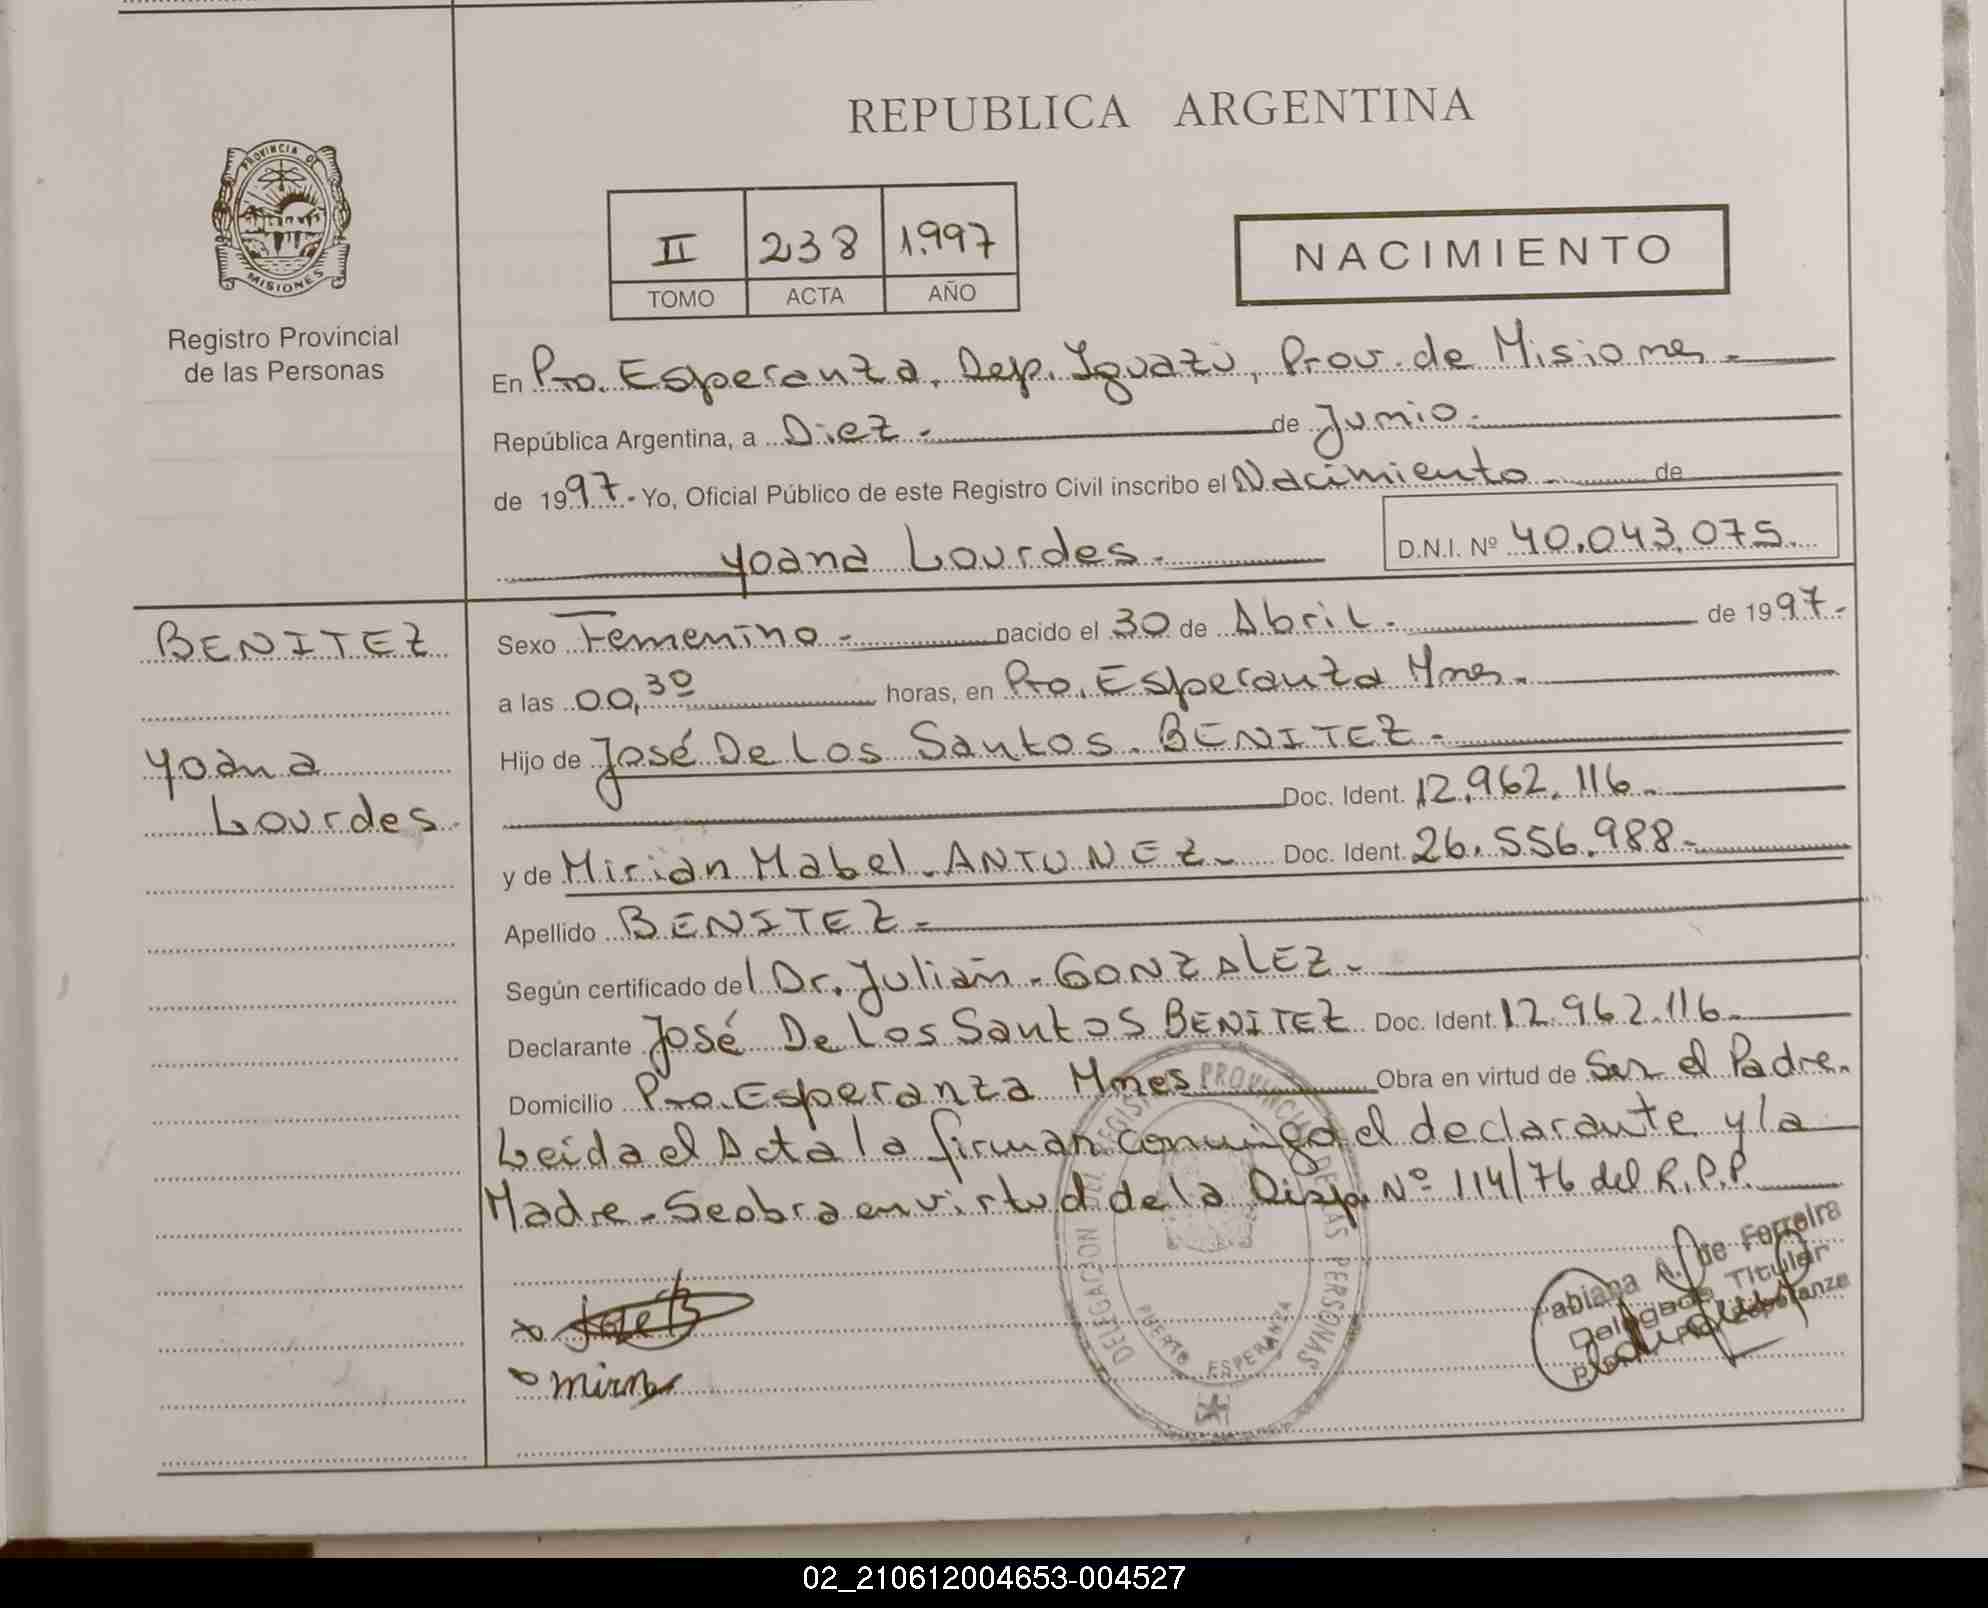 REPUBLICA ARGENTINA
PROVINCIA DE
MISIONES
Registro Provincial
de las Personas
II 238 1.997
TOMO ACTA AÑO
NACIMIENTO
En Pto. Esperanza, Dep. Iguazú, Prov. de Misiones.-
República Argentina, a Diez.- de Junio.-
de 1997.- Yo, Oficial Público de este Registro Civil inscribo el Nacimiento.- de
Yoana Lourdes.-
D.N.I. Nº 40.043.075.
BENITEZ
Yoana
Lourdes.
Sexo Femenino.- nacido el 30 de Abril.- de 1997.-
a las 00,30 horas, en Pto. Esperanza Mnes.-
Hijo de José De Los Santos. BENITEZ.-
Doc. Ident. 12.962.116.-
y de Mirian Mabel. ANTUNEZ.- Doc. Ident. 26.556.988.-
Apellido BENITEZ.-
Según certificado del Dr. Julián. GONZALEZ.-
Declarante José De Los Santos BENITEZ Doc. Ident. 12.962.116.-
Domicilio Pto. Esperanza Mnes Obra en virtud de Ser el Padre.
Leída el Acta la firman conmigo el declarante y la
Madre.- Se obra en virtud de la Disp. Nº 114/76 del R.P.P.
DELEGACION DEL REGISTRO PROVINCIAL DE LAS PERSONAS
PUERTO ESPERANZA
José B
Mirn
Fabiana A. de Ferreira
Delegada Titular
02_210612004653-004527